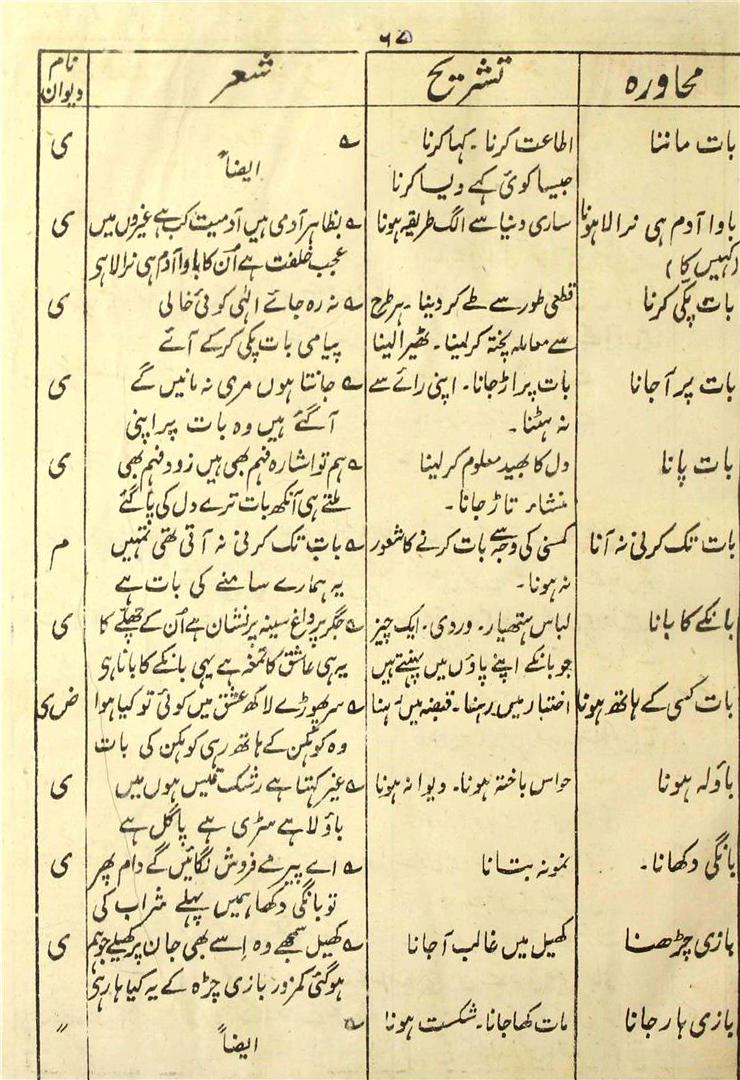 ۶۷
محاورہ	تشریح	شعر	نام دیوان
بات ماننا	اطاعت کرنا ۔ کہا کرنا	؎	ی
جیسا کوئی کہے ویسا کرنا	ایضاً
باوا آدم ہی نرالا ہونا	ساری دنیا سے الگ طریقہ ہونا	؎ بظاہر آدمی ہیں آدمیت کب ہے غیروں میں	ی
(کہیں کا)	عجب خلقت ہے اُن کا باوا آدم ہی نرالا ہی
بات پکی کرنا	قطعی طور سے طے کر دینا ۔ ہر طرح	؎ نہ رہ جائے الٰہی کوئی خالی	ی
سے معاملہ پختہ کر لینا ۔ ٹھیرا لینا	پیامی بات پکی کرکے آئے
بات پر آجانا	بات پر اڑ جانا ۔ اپنی رائے سے	؎ جانتا ہوں مری نہ مانیں گے	ی
نہ ہٹنا ۔	آگئے ہیں وہ بات پر اپنی
بات پانا	دل کا بھید معلوم کر لینا	؎ ہم تو اشارہ فہم بھی ہیں زود فہم بھی	ی
منشاء تاڑ جانا ۔	ملتے ہی آنکھ بات ترے دل کی پا گئے
بات تک کرنی نہ آنا	کمسنی کی وجہ سے بات کرنے کا شعور	؎ بات تک کرنی نہ آتی تھی تمہیں	م
نہ ہونا ۔	یہ ہمارے سامنے کی بات ہے
بانکے کا بانا	لباس ہتھیار ۔ وردی ۔ ایک چیز	؎ جگر پر داغ سینہ پر نشان ہے اُن کے چھلّے کا	ی
جو بانکے اپنے پاؤں میں پہنتے ہیں	یہ ہی عاشق کا تمغہ ہے یہی بانکے کا بانا ہی
بات کسی کے ہاتھ ہونا	اختیار میں رہنا ۔ قبضہ میں رہنا	؎ سر پھوڑے لاکھ عشق میں کوئی تو کیا ہوا	ض ی
وہ کوہکن کے ہاتھ رہی کوہکن کی بات
باؤلہ ہونا	حواس باختہ ہونا ۔ دیوانہ ہونا	؎ غیر کہتا ہے رشک قیس ہوں میں	ی
باؤلا ہے سڑی ہے پاگل ہے
بانگی دکھانا ۔	نمونہ بتانا	؎ اے پیر مے فروش لگائیں گے دام پھر	ی
تو بانگی دکھا ہمیں پہلے شراب کی
بازی چڑھنا	کھیل میں غالب آجانا	؎ کھیل سمجھے وہ اِسے بھی جان پر کھیلے جو ہم	ی
ہوگئی کمزور بازی چڑھ کے یہ کیا ہار ہی
بازی ہار جانا	مات کھا جانا ۔ شکست ہونا	؎	〃
ایضاً